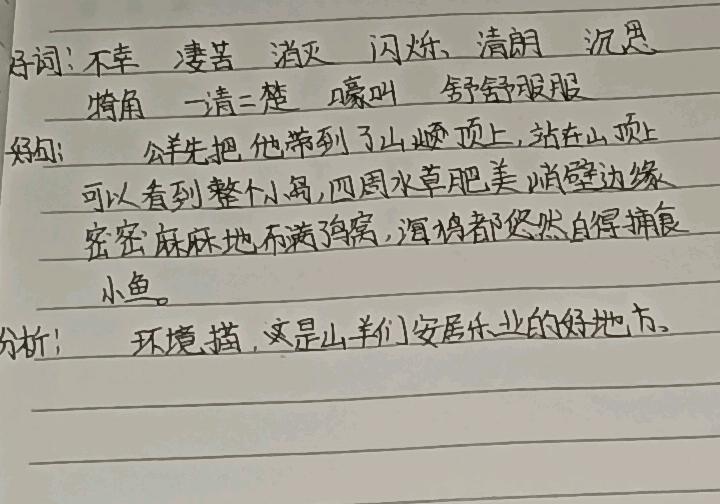 好词：不幸 凄苦 消灭 闪烁、清朗 沉思
犄角 一清二楚 嚎叫 舒舒服服
好句： 公羊先把他带到了山顶顶上，站在山顶上
可以看到整个小岛，四周水草肥美 峭壁边缘
密密麻麻地布满鸦窝，海鸦都悠然自得捕食
小鱼。
分析： 环境描，这是山羊们安居乐业的好地方、